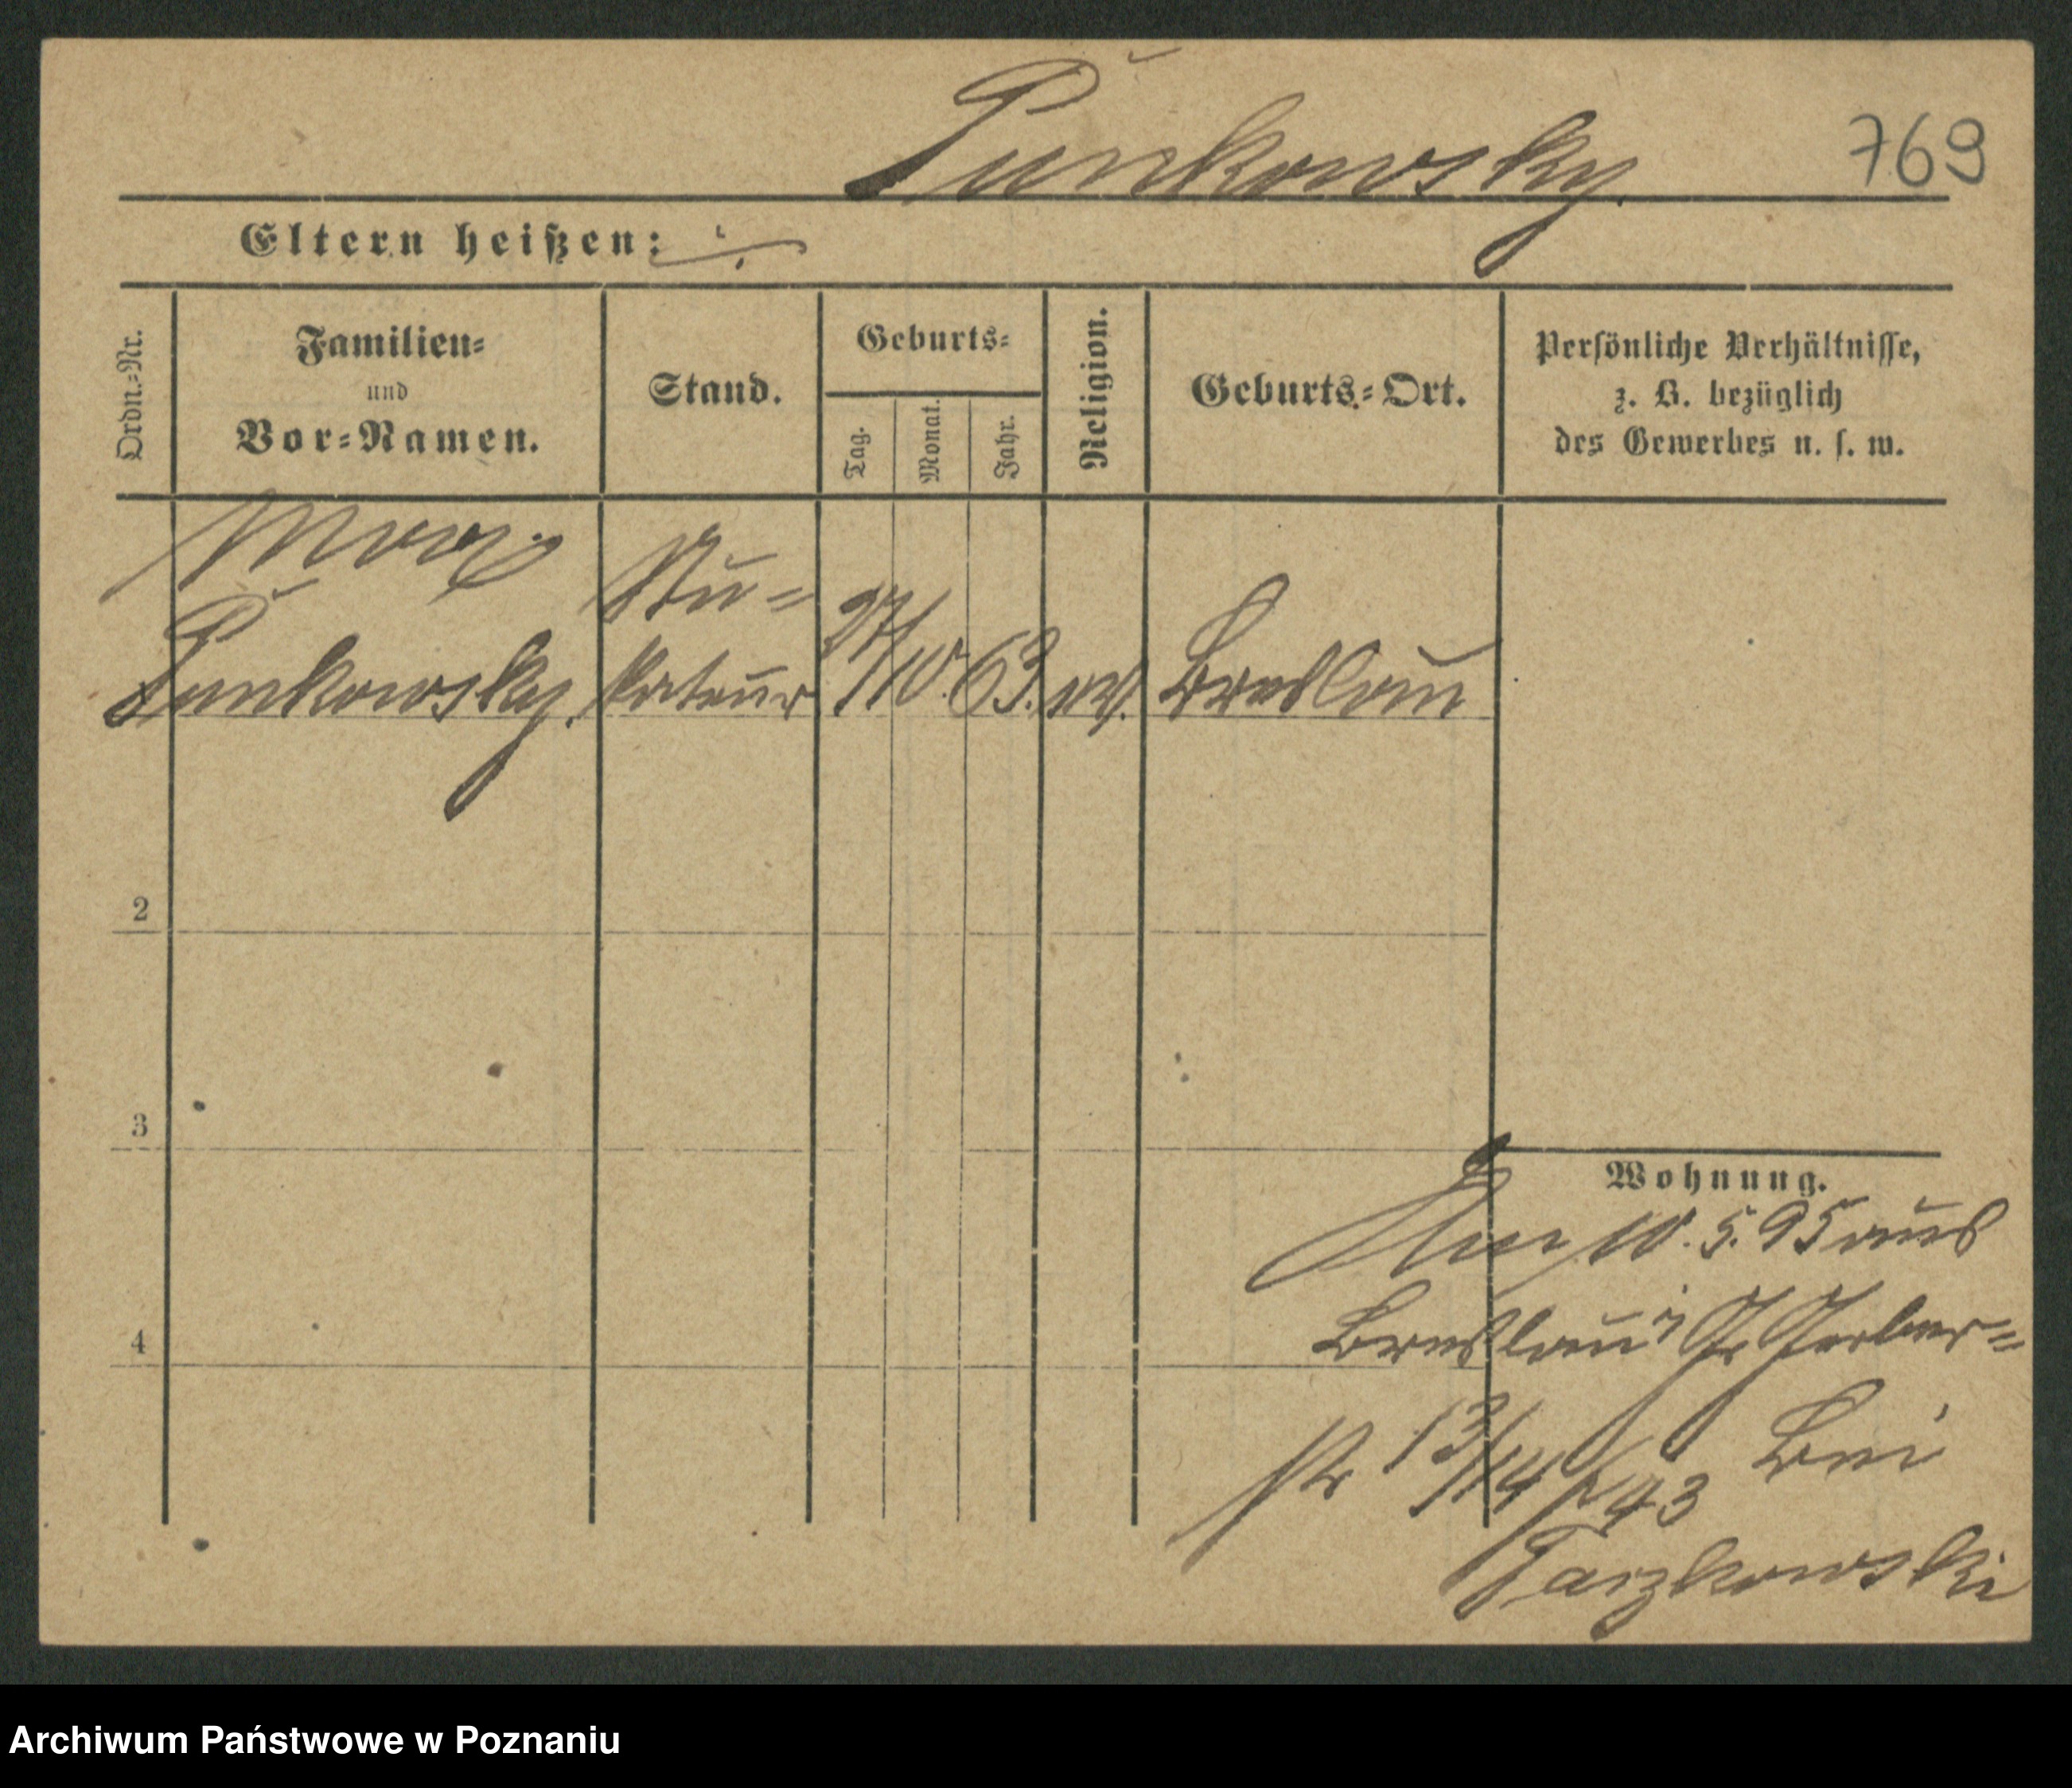 Punkowsky.
769
Eltern heißen: ·/·
Ordn.-Nr.
Familien-
und
Vor-Namen.
Stand.
Geburts-
Tag.
Monat.
Jahr.
Religion.
Geburts-Ort.
Persönliche Verhältnisse,
z. B. bezüglich
des Gewerbes u. s. w.
Max
Punkowsky.
Stu-
kateur
27/10. 63.
ev.
Breslau
2
3
4
Wohnung.
Am 10. 5. 95 aus
Breslau Gr Gerber-
str 13/14 bei
Tarzkowski
Archiwum Państwowe w Poznaniu